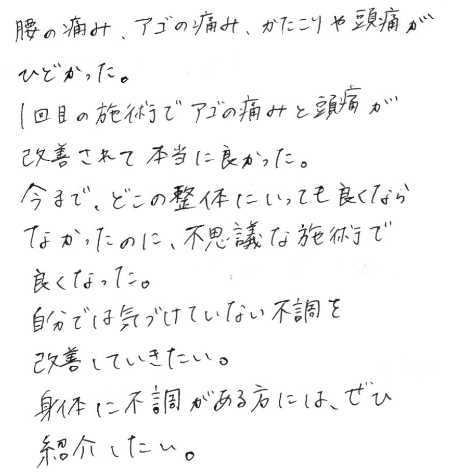 腰の痛み、アゴの痛み、かたこりや頭痛が
ひどかった。
1回目の施術でアゴの痛みと頭痛が
改善されて本当に良かった。
今まで、どこの整体にいっても良くなら
なかったのに、不思議な施術で
良くなった。
自分では気づけていない不調を
改善していきたい。
身体に不調がある方には、ぜひ
紹介したい。